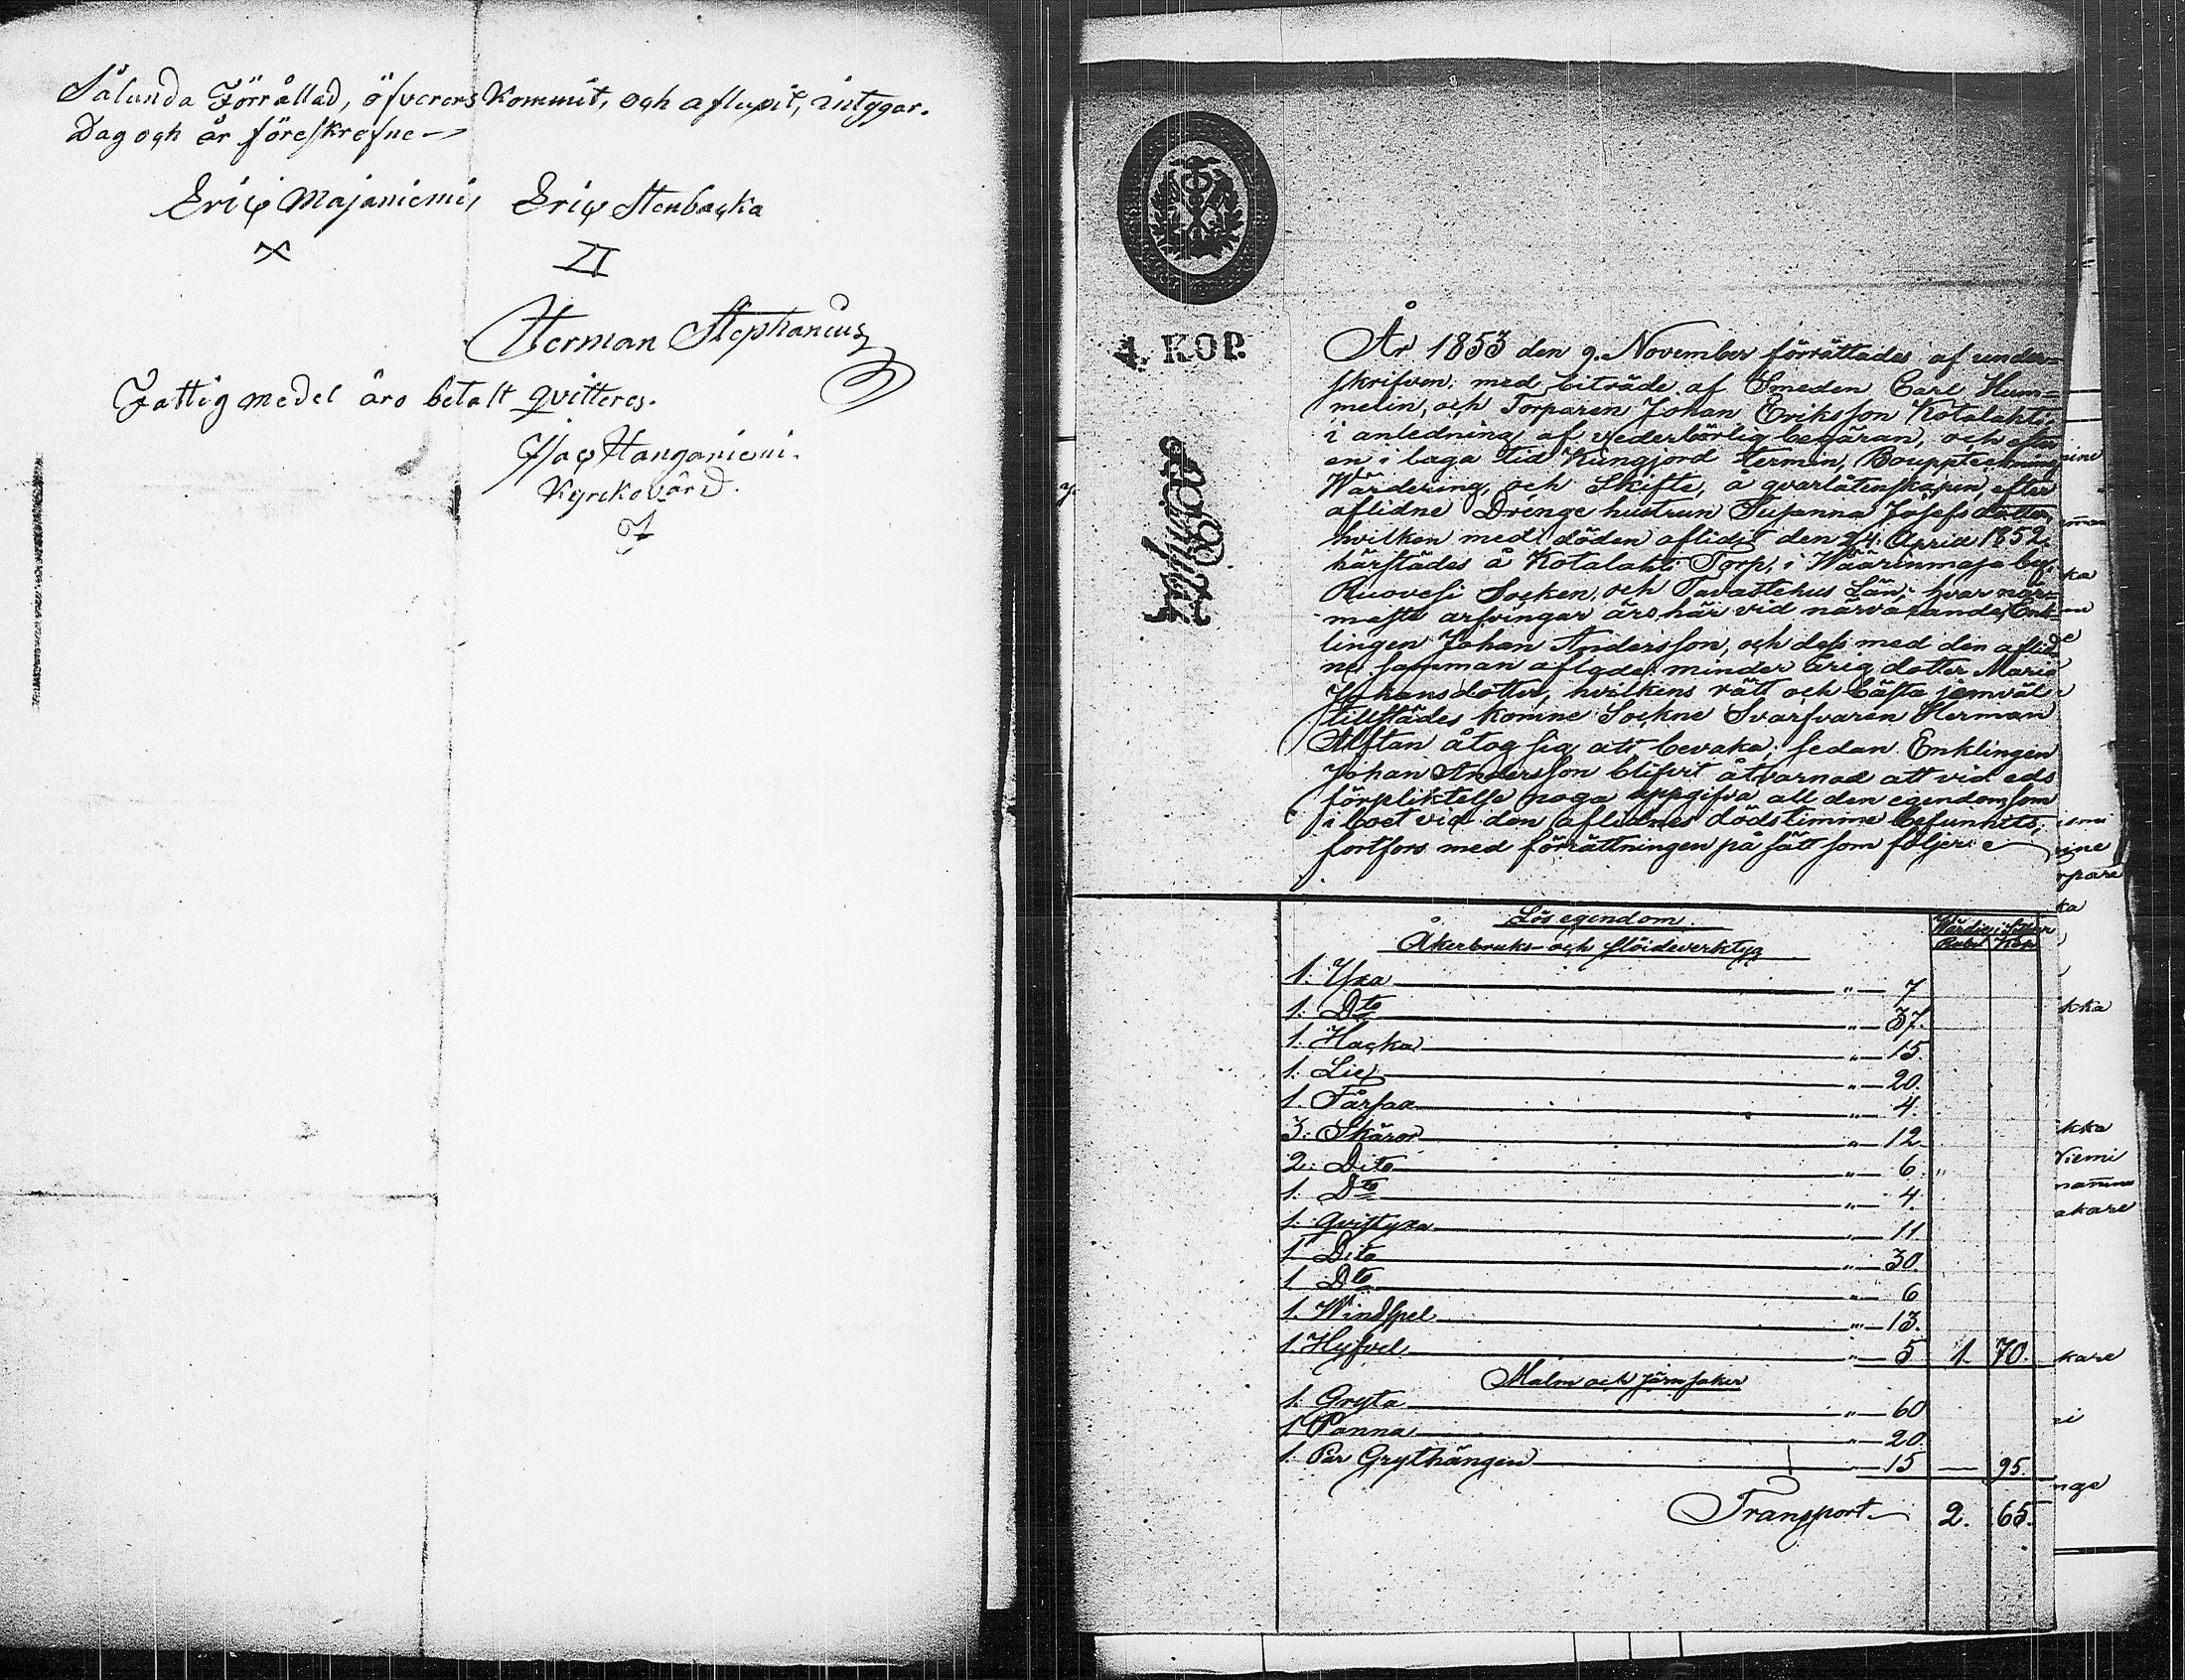 Sålunda Förrållad, öfverens Kommit, och aflupit, intygar.
Dag och årföreskrefne
Eric Majaniemi, Eric Stenbacka
Herman Stephanius
Fattig medel äro betalt qvitteres.
Isac Hanganiemi.
Kyrckovärd.
4. KOP.
År 1853 den 9. November förrättades af under-
skrifven, med biträde af Smeden Carl Hum-
melin, och Torparen Johan Eriksson Kotalahti,
i anledning af vederbörlig begäran, och efter
en i laga tid Kungjord termin, Bouppteckning
Wärdering och Skifte, å qvarlåtenskapen efter
aflidne Drenge hustrun Susanna Josefsdotter,
hvilken med döden aflidit den 24. April 1852.
härstädes å Kotalahti Torp, i Wäärinmaja by,
Ruovesi Socken, och Tavastehus Län; hvar när-
maste arfvingar äro här vid närvarande, Enk-
lingen Johan Andersson, och dess med den aflid-
ne samman aflade minder årig dotter Maria
Johansdotter, hvilkens rätt och bästa jemväl
tillstädes komne Sockne Svarfvaren Herman
Alftan åtog sig att bevaka; sedan Enklingen
Johan Andersson blifvit åtvarnad att vid eds
förpliktelse noga uppgifva all den egendom som
i boet vid den aflidnes dödstimme befunnits,
fortfors med förrättningen på sätt som följer:
Lös egendom.
Åkerbruks- och slöideverktyg
Wärdie i Silfver
Rubl Kop
1. Yxa " 7
1. Dto " 37.
1. Hacka " 15.
1. Lie " 20.
1. Fårsax " 4.
3. Skäror " 12
2. Dito " 6.
1. Dto " 4.
1. Qvistyxa " 11
1 Dito " 30.
1 Dto " 6
1. Windspel " 13.
1. Hyfvel " 5 1. 70.
Malm och järnsaker
1. Gryta " 60
1 Panna " 20.
1. Par Grythängen 15 — 95.
Transport 2. 65.